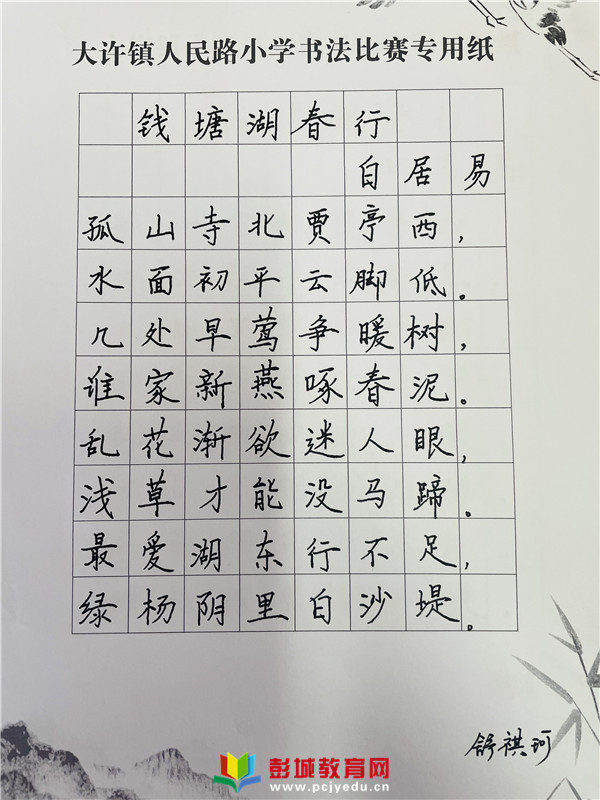 大许镇人民路小学书法比赛专用纸
钱塘湖春行
白居易
孤山寺北贾亭西，
水面初平云脚低。
几处早莺争暖树，
谁家新燕啄春泥。
乱花渐欲迷人眼，
浅草才能没马蹄。
最爱湖东行不足，
绿杨阴里白沙堤。
舒祺珂
彭城教育网
www.pcjyedu.cn